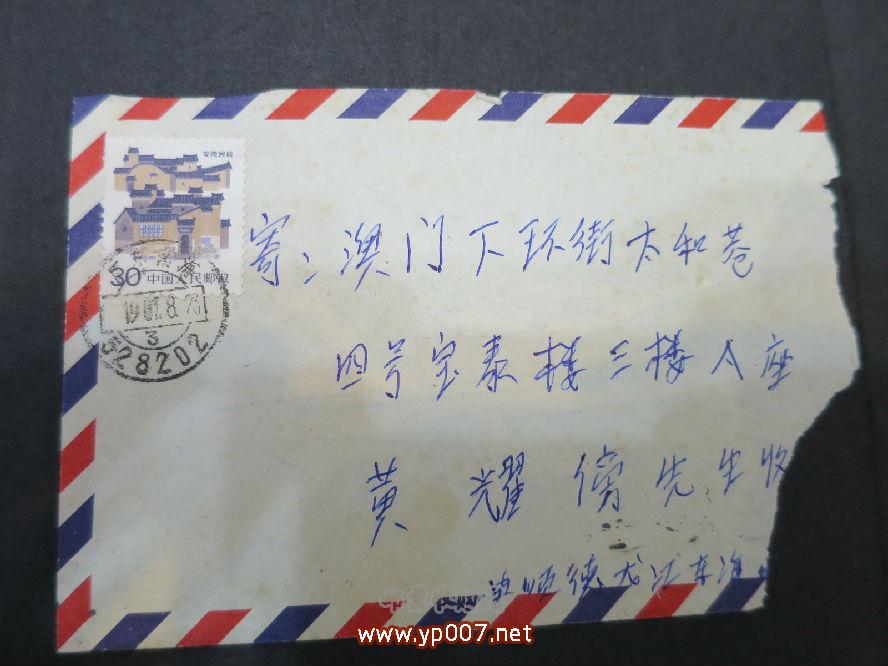 安徽民居
30 中国人民邮政
3
528202
寄：澳门下环街太和巷
四号宝泰楼三楼A座
黄耀 先生收
顺德龙江东
www.yp007.net